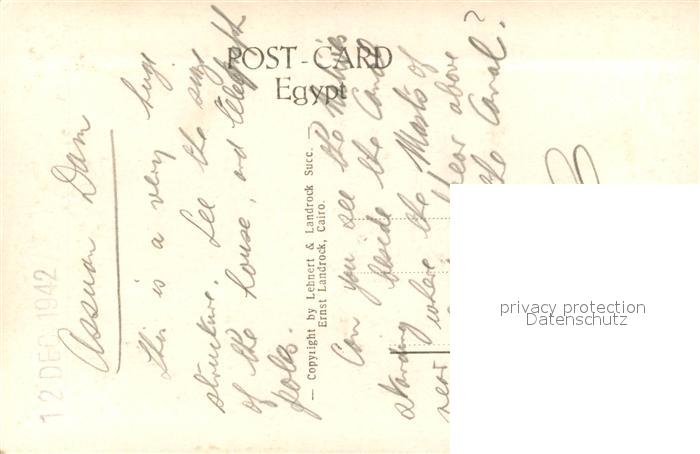 POST-CARD
Egypt
— Copyright by Lehnert & Landrock Succ. —
Ernst Landrock, Cairo.
12 DEC 1942
Assuan Dam
This is a very huge
structure. See the size
of the house, and telegraph
poles.
Can you see the natives
beside the Canal
standing where the Masts of
near above
the Canal?
privacy protection
Datenschutz